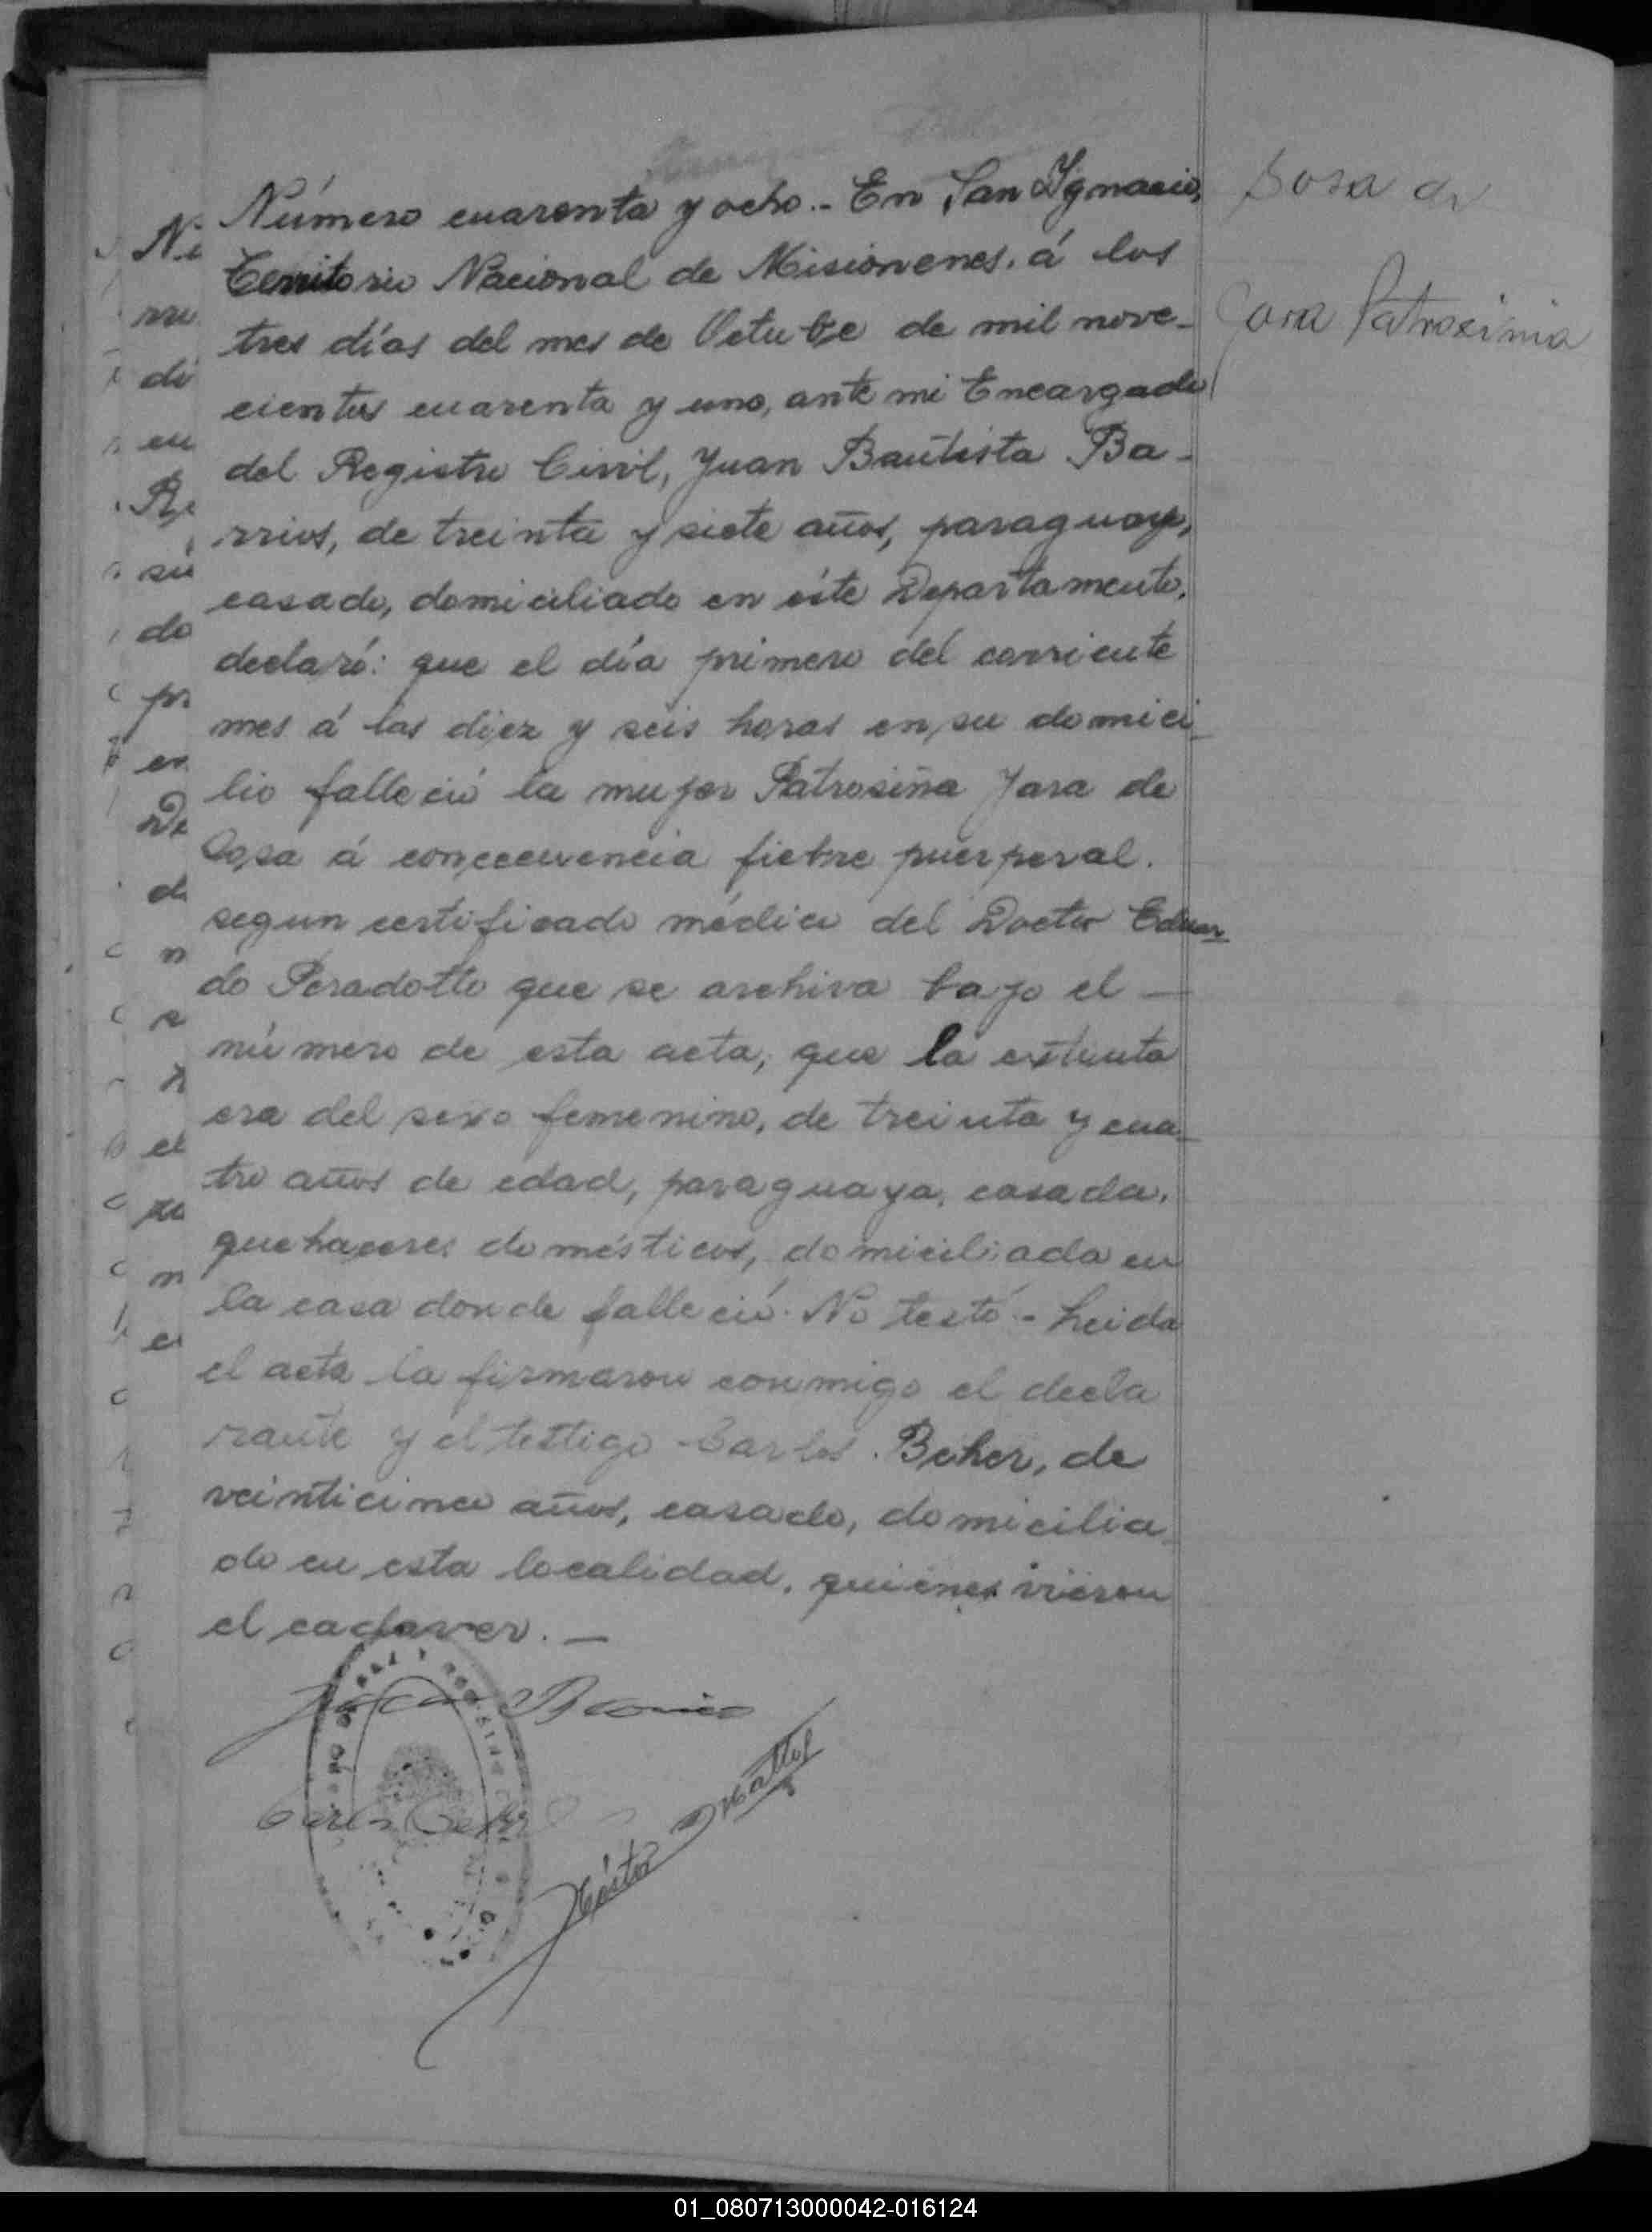 Número cuarenta y ocho.- En San Ygnacio,
Territorio Nacional de Misionenes, á los
tres días del mes de Octubre de mil nove-
cientos cuarenta y uno, ante mi Encargado
del Registro Civil, Juan Bautista Ba-
rrios, de treinta y siete años, paraguayo,
casado, domiciliado en éste Departamento,
declaró: que el día primero del corriente
mes á las diez y seis horas en su domici-
lio falleció la mujer Patrosiña Jara de
Sosa á conscecuencia fiebre puerperal.
segun certificado médico del Doctor Eduar-
do Peradotto que se archiva bajo el —
número de esta acta, que la extinta
era del sexo femenino, de treinta y cua-
tro años de edad, paraguaya, casada,
quehaceres domésticos, domiciliada en
la casa donde falleció. No testó.- Leida
el acta la firmaron conmigo el decla
rante y el testigo Carlos Beher, de
veinticinco años, casado, domicilia-
do en esta localidad, quienes vieron
el cadaver. —
Juan B Barrios
Carlos
Héctor
Sosa de
Jara Patrosinia
01_080713000042-016124